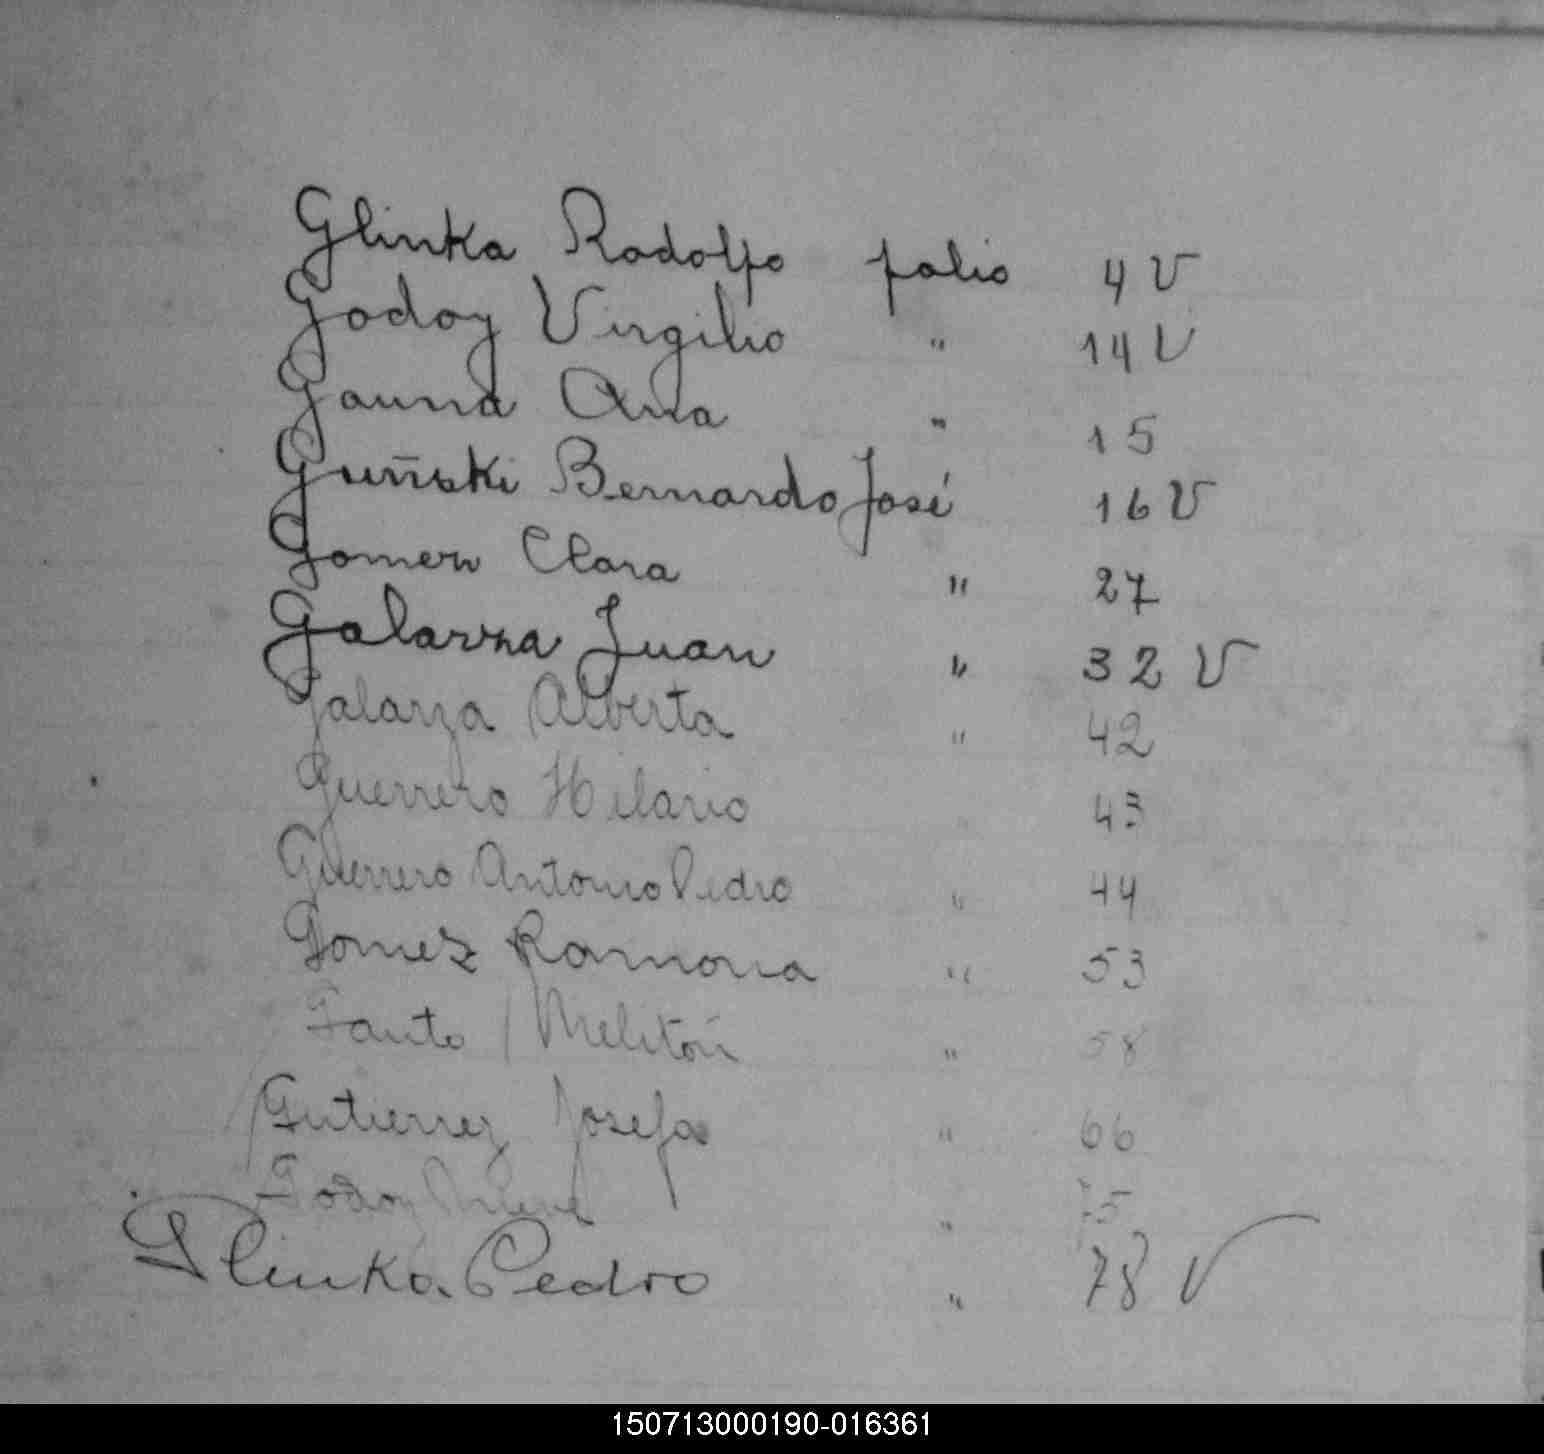 Glinka Rodolfo folio 4 V
Godoy Virgilio " 14 V
Gauna Ana " 15
Guñski Bernardo José 16 V
Gomez Clara " 27
Galarza Juan " 32 V
Galarza Alberta " 42
Guerrero Hilario " 43
Guerrero Antonio Pedro " 44
Gomez Ramona " 53
Melitón " 58
Gutierrez Josefa " 66
Godoy " 75
Glinka Pedro " 78 V
150713000190-016361